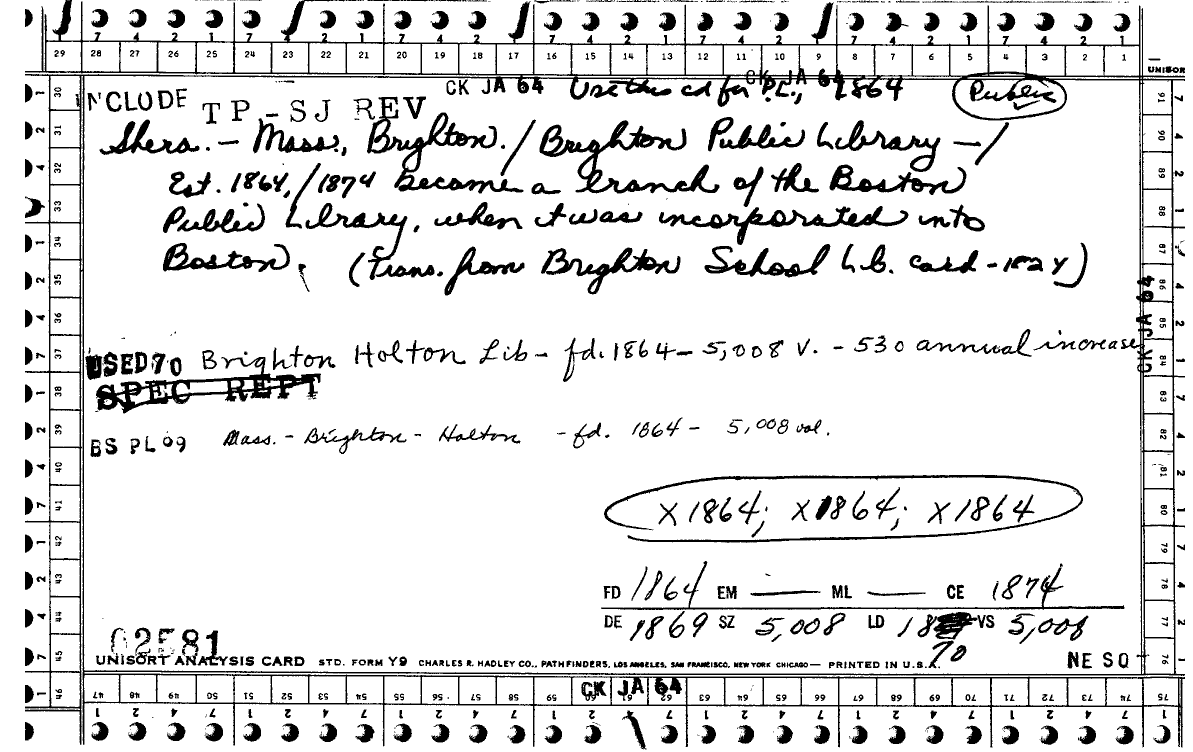 7 4 2 1 7 4 2 1 7 4 2 1 7 4 2 1 7 4 2 1 7 4 2 1 7 4 2 1
29 28 27 26 25 24 23 22 21 20 19 18 17 16 15 14 13 12 11 10 9 8 7 6 5 4 3 2 1
UNISORT
NCLUDE TP-SJ REV CK JA 64 Use this cd for P.L., 1864 CK JA 64 Public
Shera. - Mass., Brighton. / Brighton Public Library - /
Est. 1864, / 1874 became a branch of the Boston
Public Library, when it was incorporated into
Boston. (Trans. from Brighton School Lib. card - 1824)
USED 70 Brighton Holton Lib - fd. 1864 - 5,008 V. - 530 annual increase
SPEC REPT
CK JA 64
BS PL 09 Mass. - Brighton - Holton - fd. 1864 - 5,008 vol.
X 1864; X 1864; X 1864
FD 1864 EM — ML — CE 1874
DE 1869 SZ 5,008 LD 18 70 VS 5,008
02581
UNISORT ANALYSIS CARD STD. FORM Y9 CHARLES R. HADLEY CO., PATHFINDERS, LOS ANGELES, SAN FRANCISCO, NEW YORK CHICAGO — PRINTED IN U.S.A.
NE SO
CK JA 64
30 31 32 33 34 35 36 37 38 39 40 41 42 43 44 45 46
91 90 89 88 87 86 85 84 83 82 81 80 79 78 77 76
47 48 49 50 51 52 53 54 55 56 57 58 59 60 61 62 63 64 65 66 67 68 69 70 71 72 73 74 75